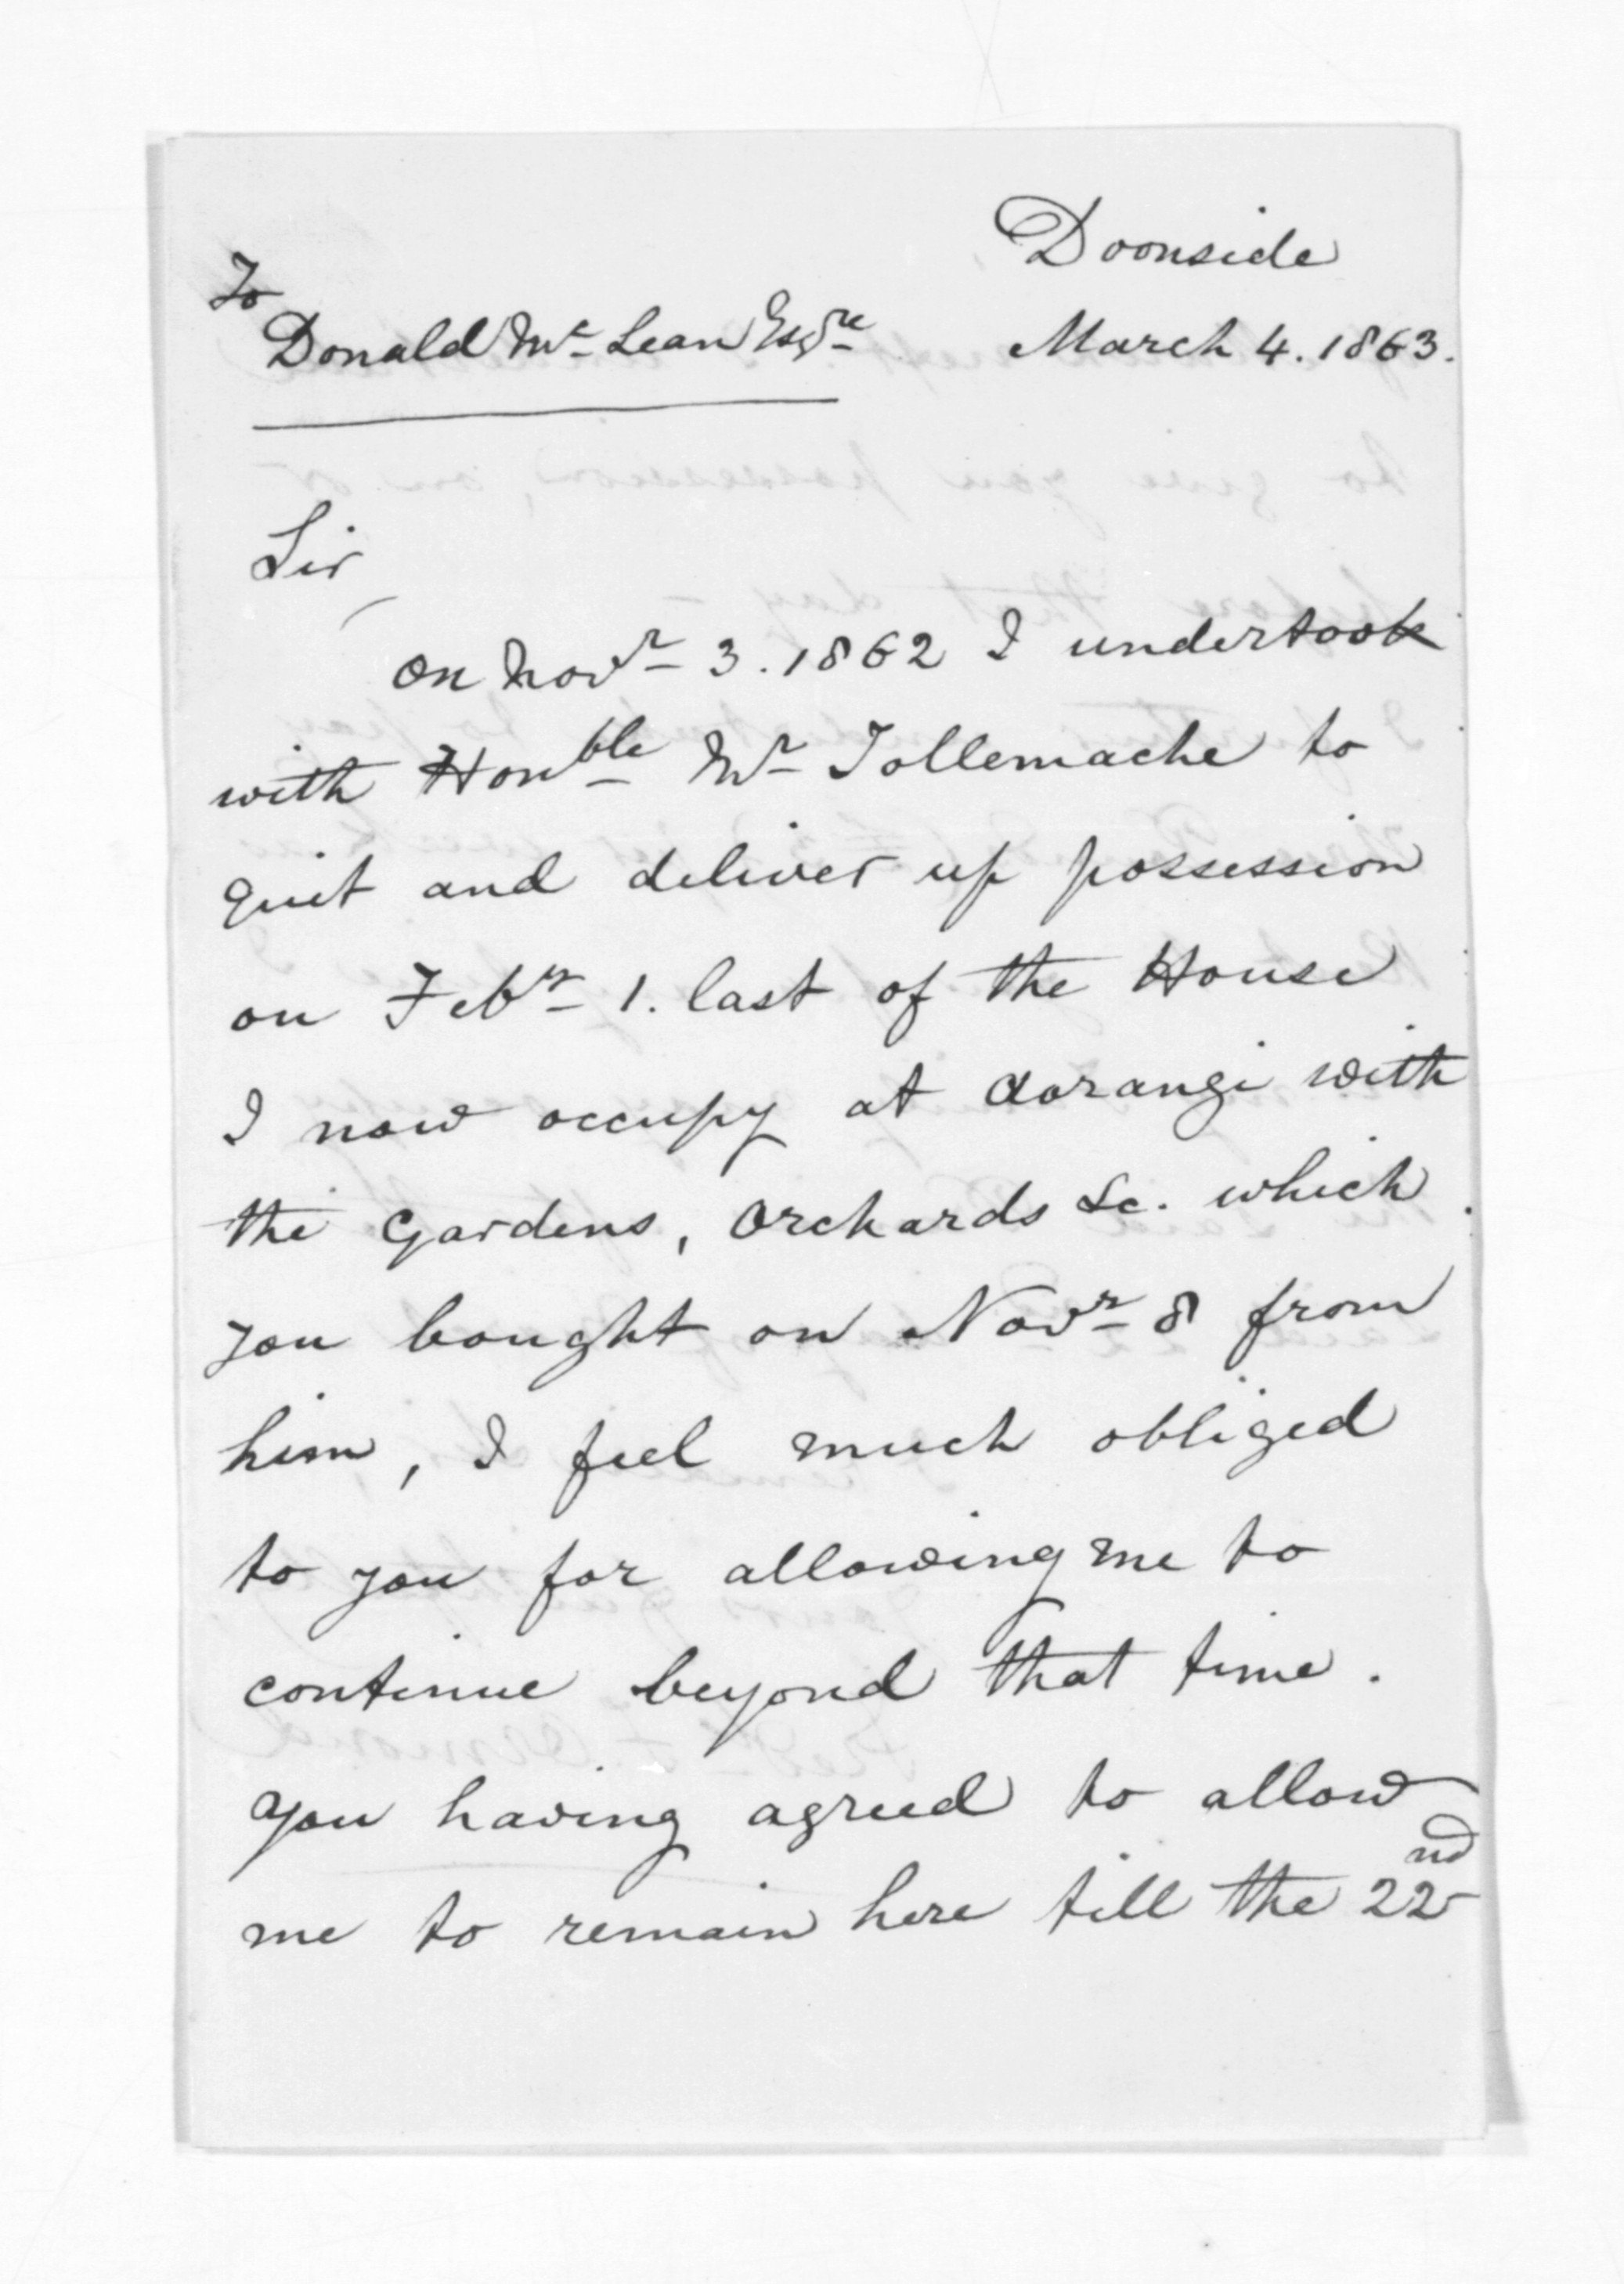 Doonside
To
Donald Mc Lean Esqre March 4. 1863.
Sir
On Novr 3. 1862 I undertook
with Honble Mr Tollemache to
quit and deliver up possession
on Febry 1. last of the House
I now occupy at Aorangi with
the Gardens, Orchards &c. which
you bought on Novr 8 from
him, I feel much obliged
to you for allowing me to
continue beyond that time.
You having agreed to allow
me to remain here till the 22nd